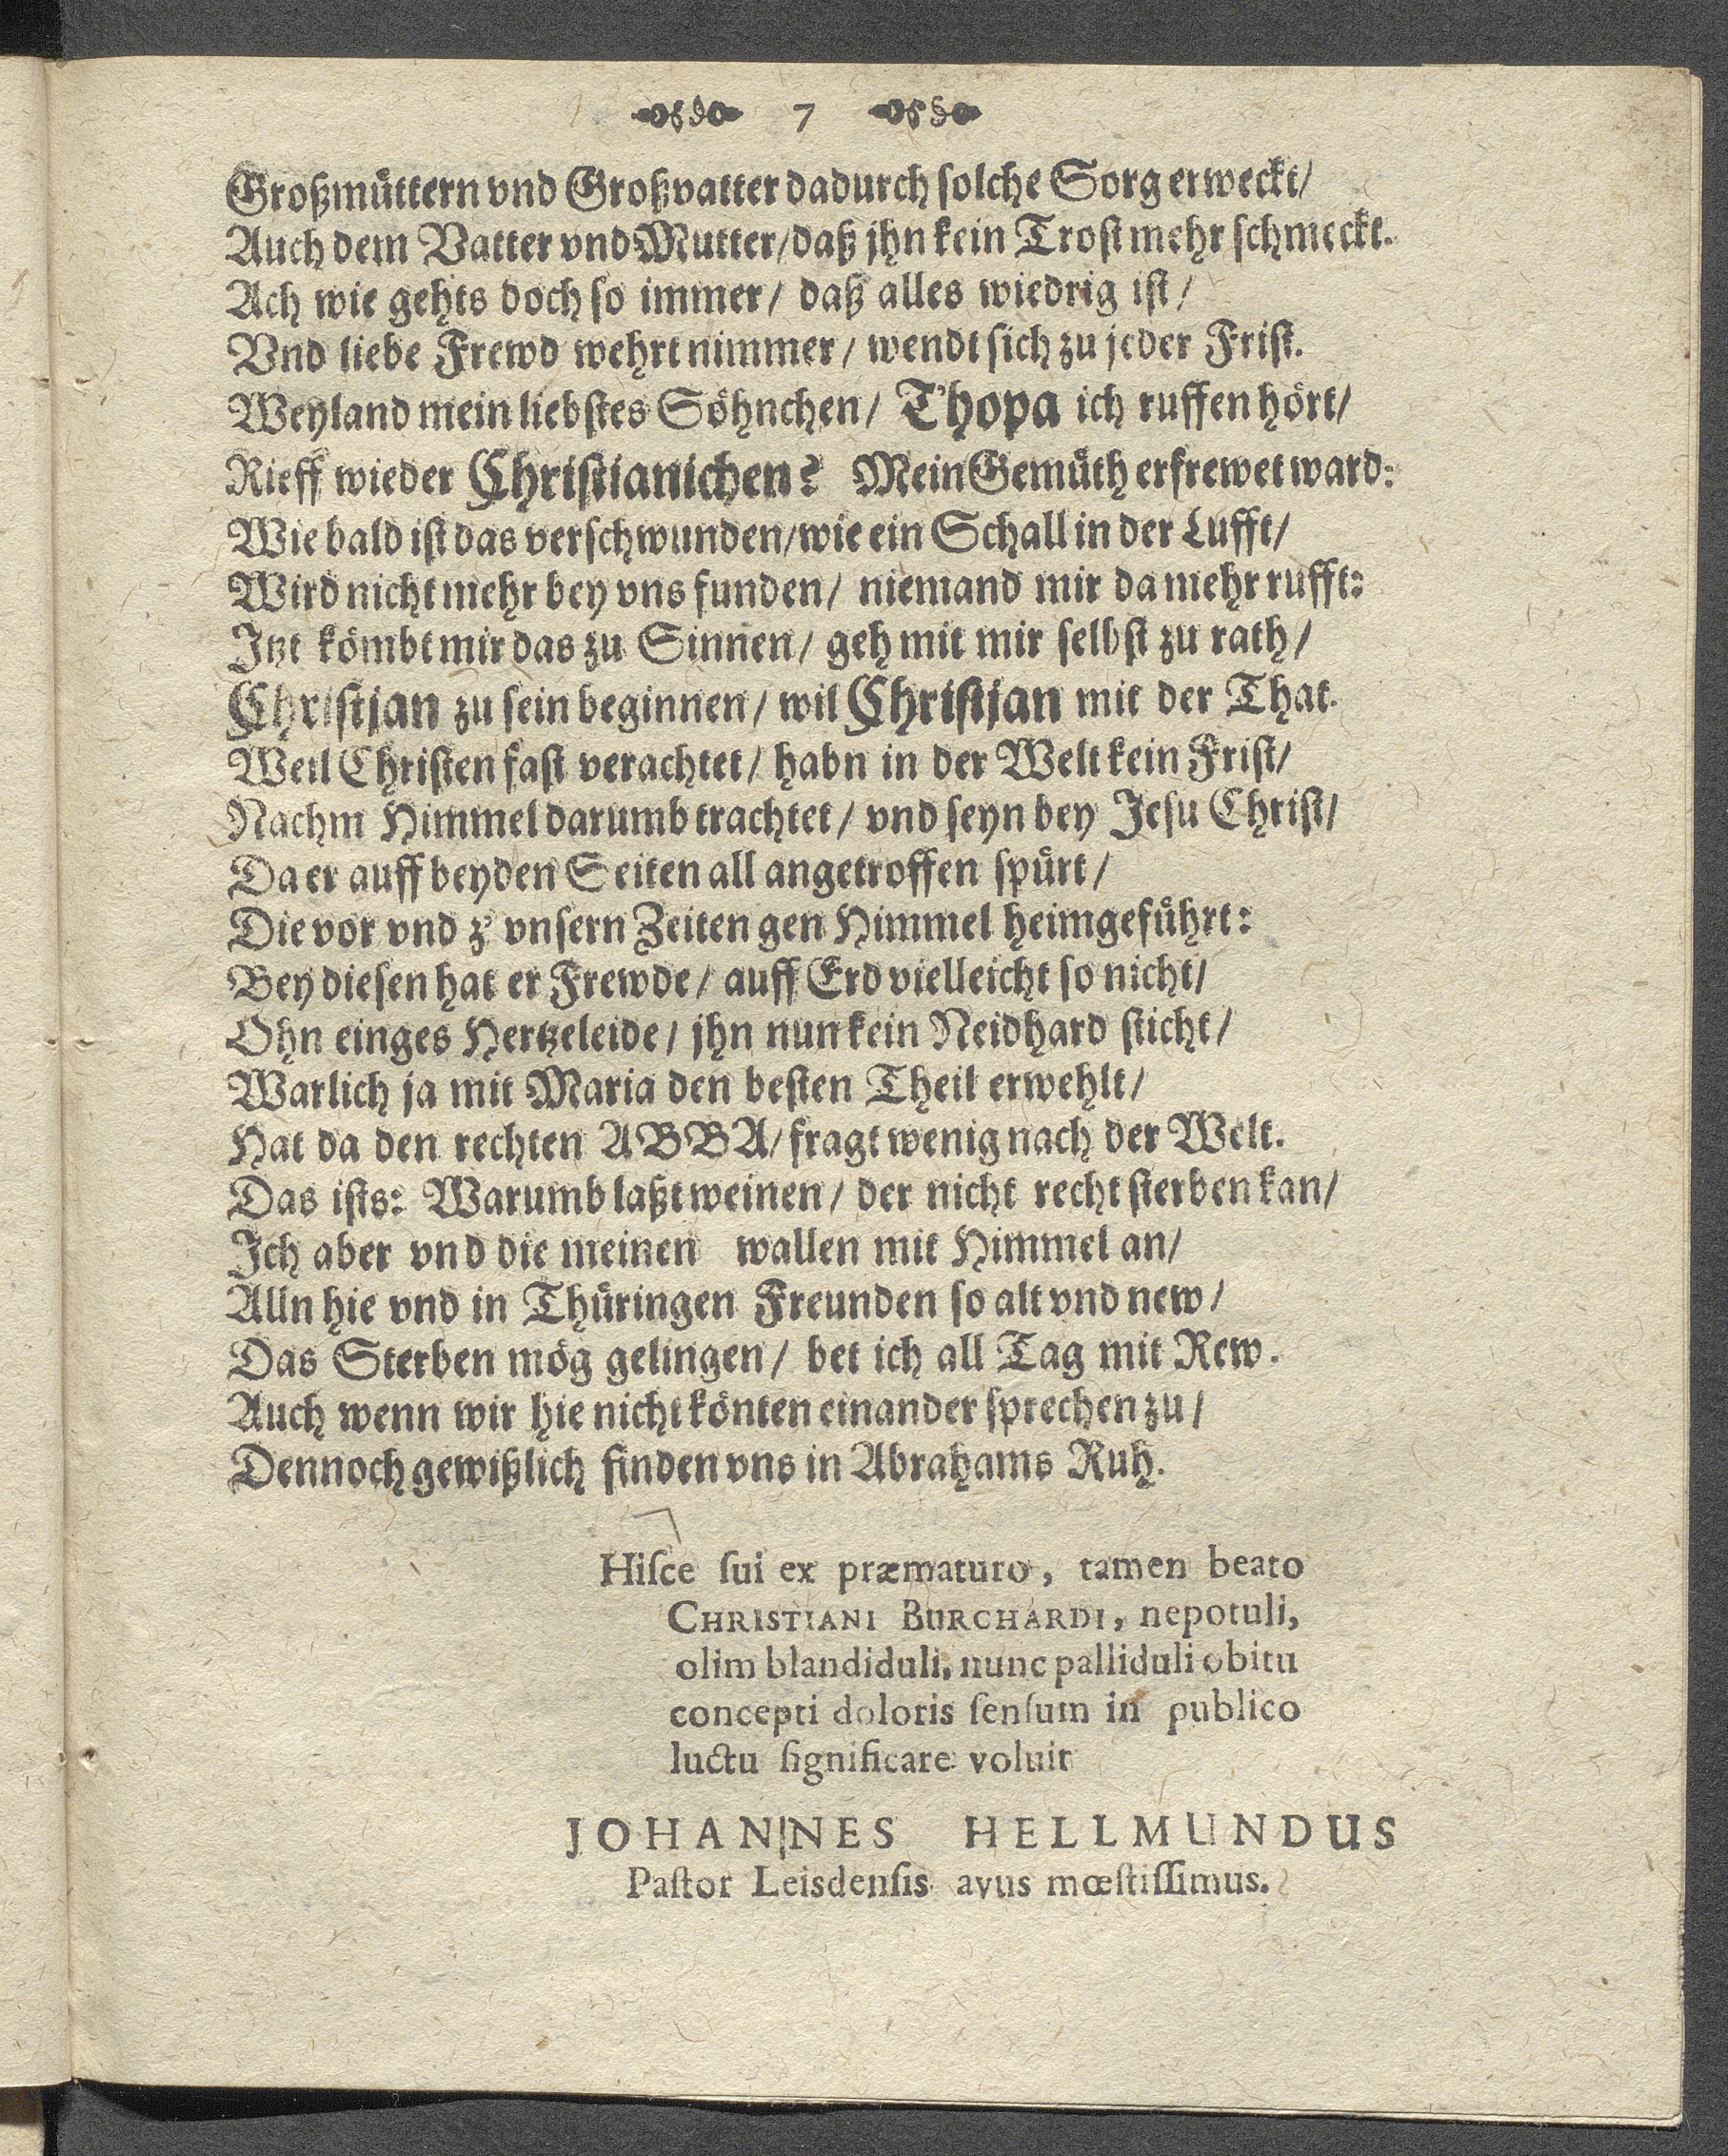 7
Großmüttern vnd Großvatter dadurch solche Sorg erweckt/
Auch dem Vatter vnd Mutter/daß jhn kein Trost mehr schmeckt.
Ach wie gehts doch so immer/ daß alles wiedrig ist/
Vnd liebe Frewd wehrt nimmer/ wendt sich zu jeder Frist.
Weyland mein liebstes Söhnchen/ T'hopa ich ruffen hört/
Rieff wieder Christianichen? Mein Gemüth erfrewet ward:
Wie bald ist das verschwunden/wie ein Schall in der Lufft/
Wird nicht mehr bey vns funden/ niemand mir da mehr rufft:
Itzt kömbt mir das zu Sinnen/ geh mit mir selbst zu rath/
Christjan zu sein beginnen/ wil Christjan mit der That.
Weil Christen fast verachtet/ habn in der Welt kein Frist/
Nachm Himmel darumb trachtet/ vnd seyn bey Jesu Christ/
Da er auff beyden Seiten all angetroffen spürt/
Die vor vnd z' vnsern Zeiten gen Himmel heimgeführt:
Bey diesen hat er Frewde/ auff Erd vielleicht so nicht/
Ohn einges Hertzeleide/ jhn nun kein Neidhard sticht/
Warlich ja mit Maria den besten Theil erwehlt/
Hat da den rechten ABBA/ fragt wenig nach der Welt.
Das ists: Warumb laßt weinen/ der nicht recht sterben kan/
Ich aber vnd die meinen wallen mit Himmel an/
Alln hie vnd in Thüringen Freunden so alt vnd new/
Das Sterben mög gelingen/ bet ich all Tag mit Rew.
Auch wenn wir hie nicht könten einander sprechen zu/
Dennoch gewißlich finden vns in Abrahams Ruh.
Hiſce ſui ex præmaturo, tamen beato
CHRISTIANI BURCHARDI, nepotuli,
olim blandiduli, nunc palliduli obitu
concepti doloris ſenſum in publico
luctu ſignificare voluit
JOHANNES HELLMUNDUS
Paſtor Leisdenſis avus mœſtiſſimus.